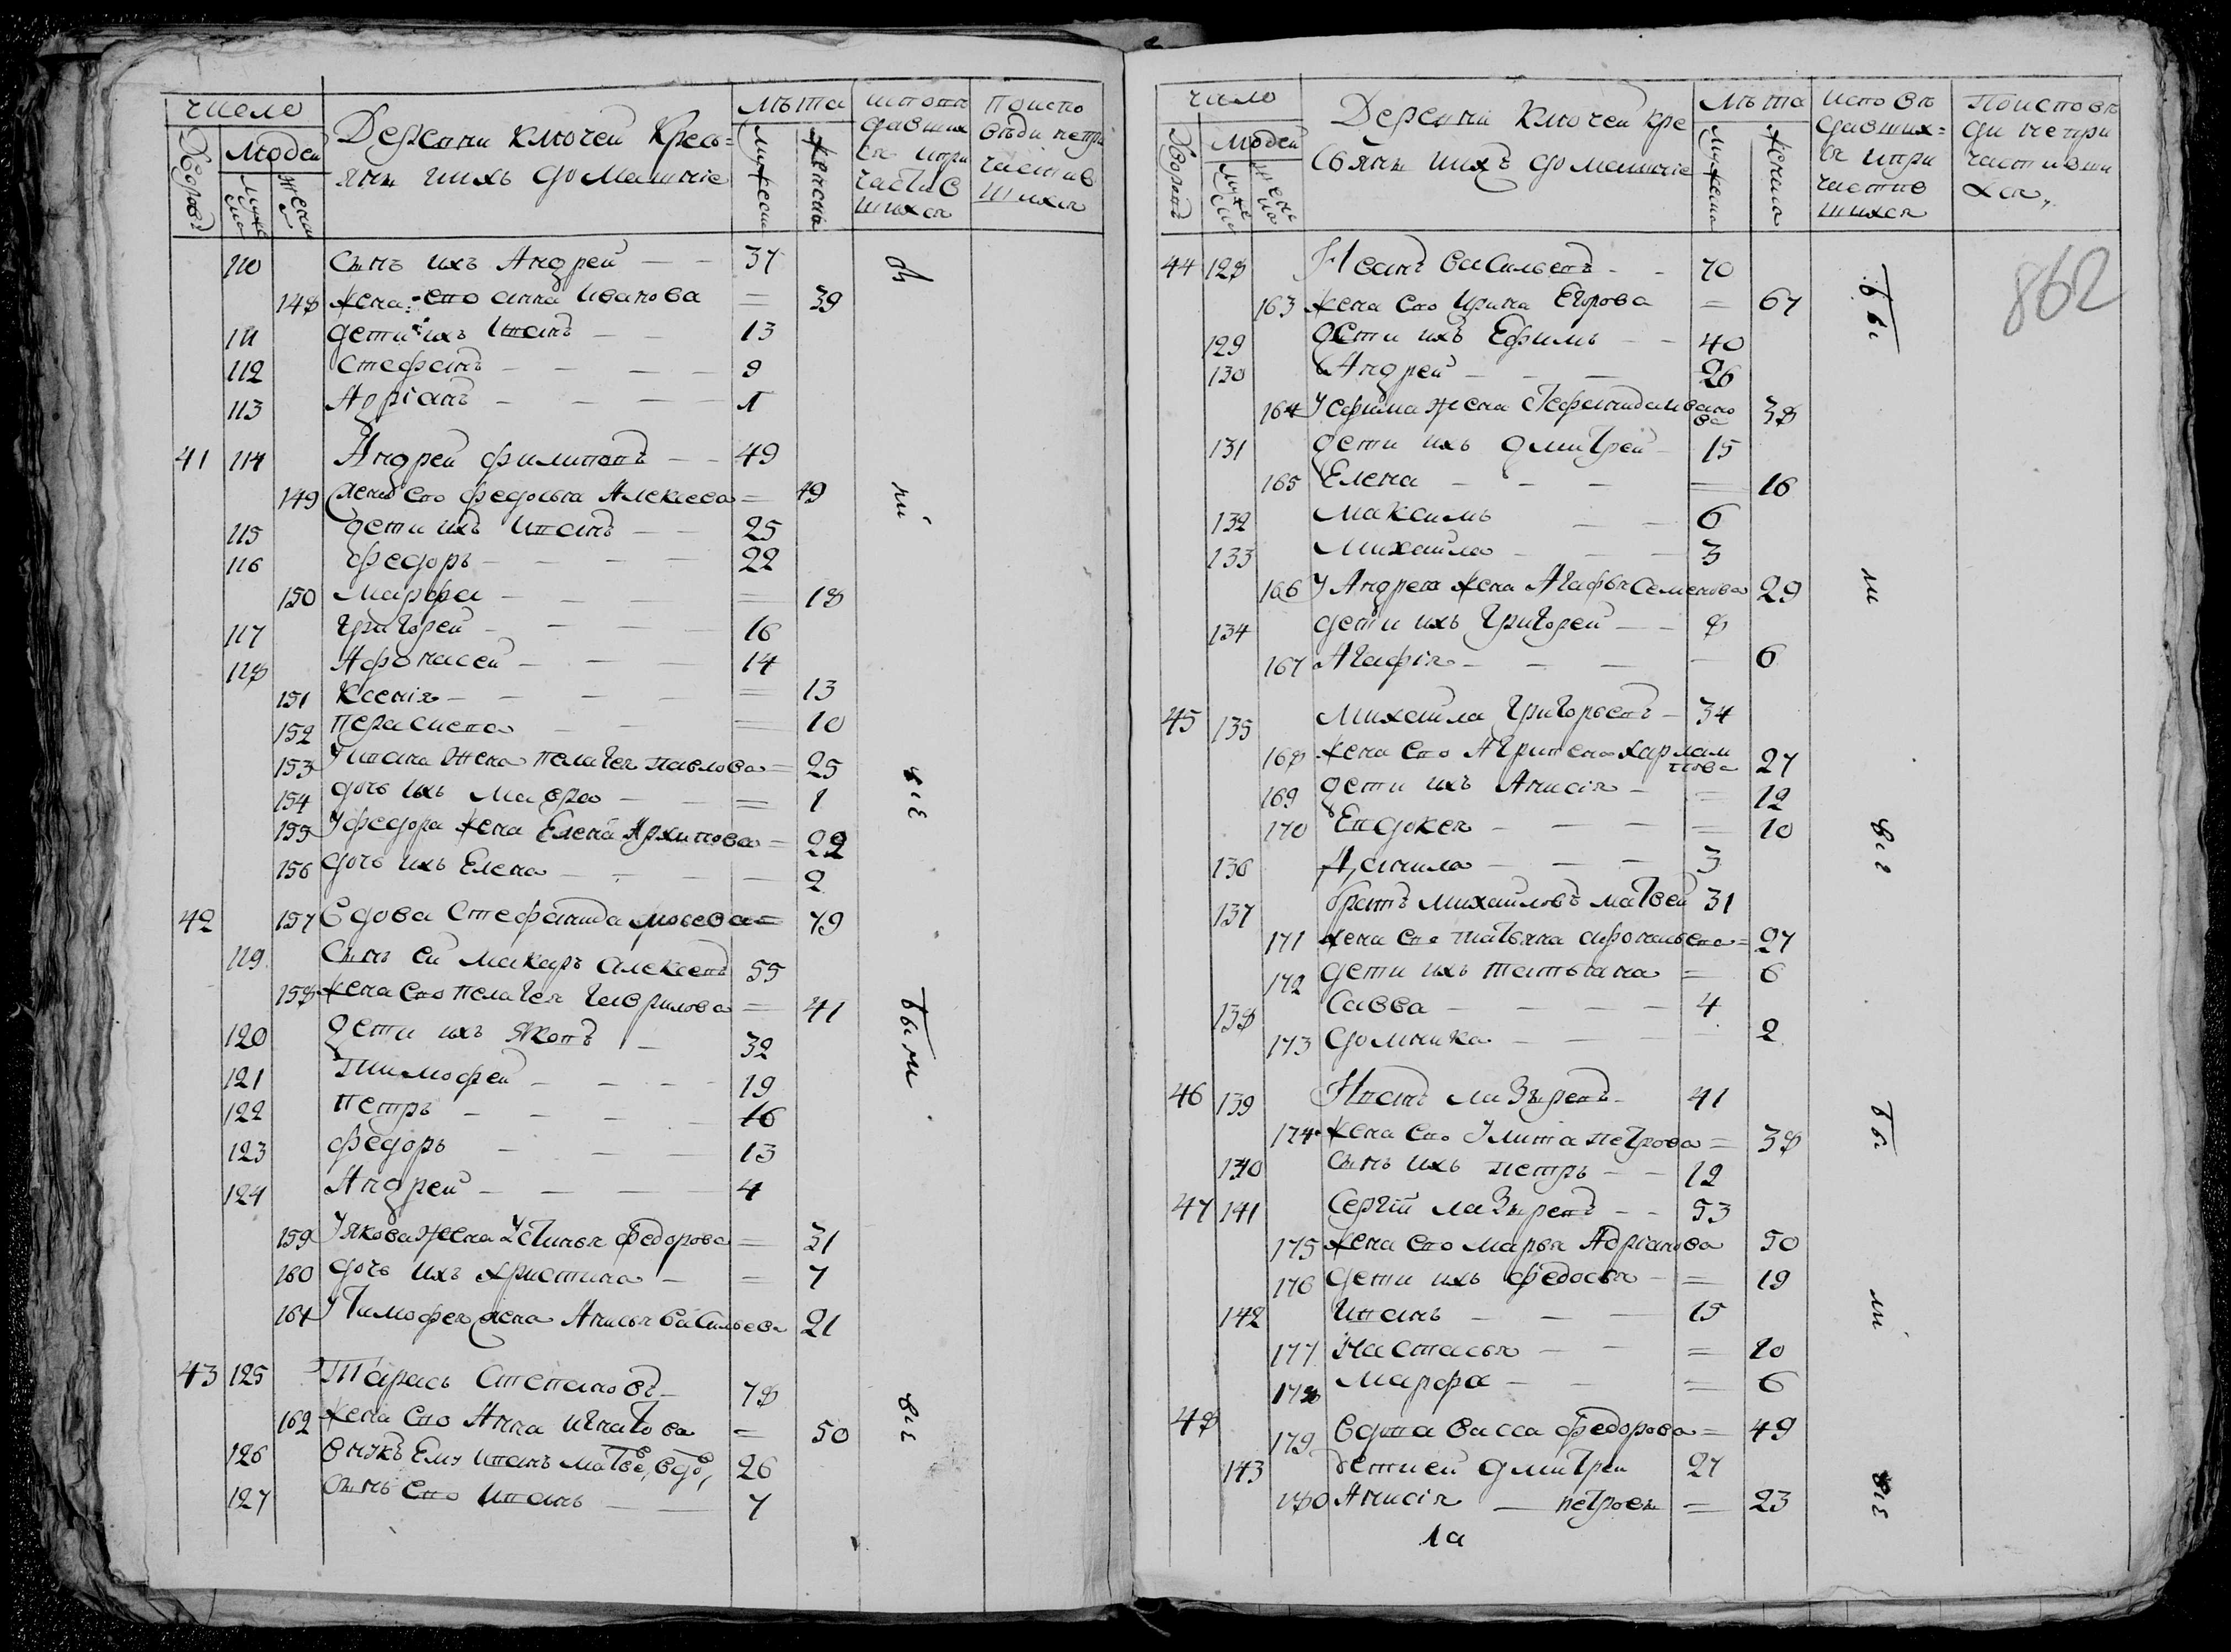 число
Людей
Дворовъ
Мужеска
Женска
Деревни Ключей Кресь=
янъ ихъ домашние
Лѣта
Мужеска
Женска
исповѣ
давших
ся и при
частив
шихся
По испо
вѣди непри
частив
шихся
110 сынъ ихъ Андрей — — 37
148 жена ево анна Иванова = 39
111 дети ихъ Иванъ — — 13
112 Стефанъ — — — — 9
113 Адріанъ — — — — 1
41 114 Андрей филиповъ — — 49
149 жена ево федосья Алексева = 49
115 дети ихъ Иванъ — — 25
116 федоръ — — — — 22
150 Марфа — — — = 18
117 Григорей — — — — 16
118 Афонасей — — — 14
151 Ксенія — — — — = 13
152 перасковя — — = 10
153 У ивана жена пелагея павлова = 25
154 дочь ихъ Мавра — — = 1
155 У федора жена Елена Архипова = 22
156 дочь ихъ Елена — — — — 2
42 157 вдова Стефанида = 79
119 Сынъ ей Макаръ алексевъ 55
158 жена ево пелагея гаврилова = 41
120 дети ихъ Яковъ — 32
121 Тимофей — — — — 19
122 петръ — — — — 16
123 федоръ — — — 13
124 Андрей — — — — 4
159 У якова жена Устинья федорова = 31
160 дочь ихъ христина — = 7
161 У Тимофея жена Анисья васильева 21
43 125 Тарасъ Степановъ — 78
162 жена ево Анна игнатова = 50
126 внукъ Ему иванъ матве, вдо, 26
127 сынъ ево иванъ — — 7
бы
ли
всѣ
были
всѣ
число
Людей
Дворовъ
Мужеска
Женска
Деревни Ключей кре
сьянъ ихъ домашніе
Лѣта
Мужеска
Женска
исповѣ
давших=
ся и при
частив
шихся
По исповѣ
ди непри
частивши
хся,
862
44 128 Иванъ васильевъ — — 70
163 жена ево Ирина Егорова = 67
129 дети ихъ Ефимъ — — 40
130 Андрей — — — 26
164 У ефима жена Стефанида ивано
ва 38
131 дети ихъ дмитрей — 15
165 Елена — — — = 16
132 максимъ — — 6
133 михайла — — — 3
166 У Андрея жена Агафья семенова 29
134 дети ихъ Григорей — — 8
167 Агафія — — — — 6
45 135 михайла григорьевъ — 34
168 жена ево Агрипена харлам
пова 27
169 дети ихъ Анисія — = 12
170 Евдокея — — — = 10
136 данила — — — 3
137 братъ михайловъ матвей 31
171 жена ево татьяна афонасьева = 27
172 дети ихъ татьяна = 6
138 Савва — — — — 4
173 домника — — — — 2
46 139 Иванъ лазыревъ — 41
174 жена ево Улита петрова = 38
140 сынъ ихъ петръ — — 12
47 141 Сергій лазыревъ — — 53
175 жена ево марья Адріанова 50
176 дети ихъ федосья — = 19
142 иванъ — — — 15
177 Настасья — — = 10
178 Марфа — — = 6
48 179 вдова васса федорова = 49
143 дети ей дмитрей 27
180 Анисія — петровы = 23
1а
бы
ли
всѣ
бы
ли
всѣ